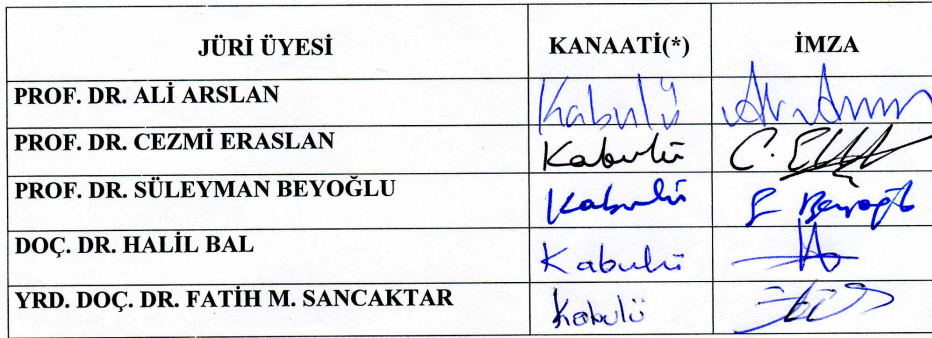 JÜRİ ÜYESİ KANAATİ(*) İMZA
PROF. DR. ALİ ARSLAN Kabulü
PROF. DR. CEZMİ ERASLAN Kabulü
PROF. DR. SÜLEYMAN BEYOĞLU Kabulü
DOÇ. DR. HALİL BAL Kabulü
YRD. DOÇ. DR. FATİH M. SANCAKTAR Kabulü